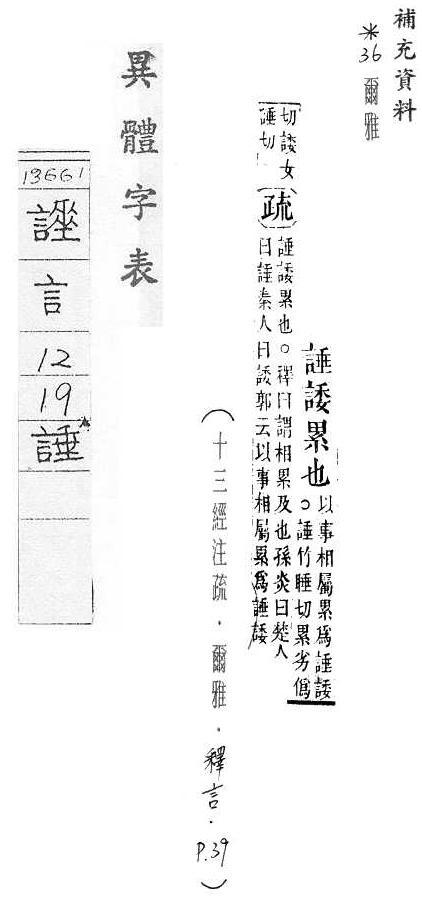 補充資料
*36 爾雅
諈諉累也以事相屬累爲諈諉
○諈竹睡切累劣僞
切諉女
睡切
疏
諈諉累也○釋曰謂相累及也孫炎曰楚人
曰諈秦人曰諉郭云以事相屬累爲諈諉
(十三經注疏．爾雅．釋言．P.39)
異體字表
13661
言
12
19
諈*